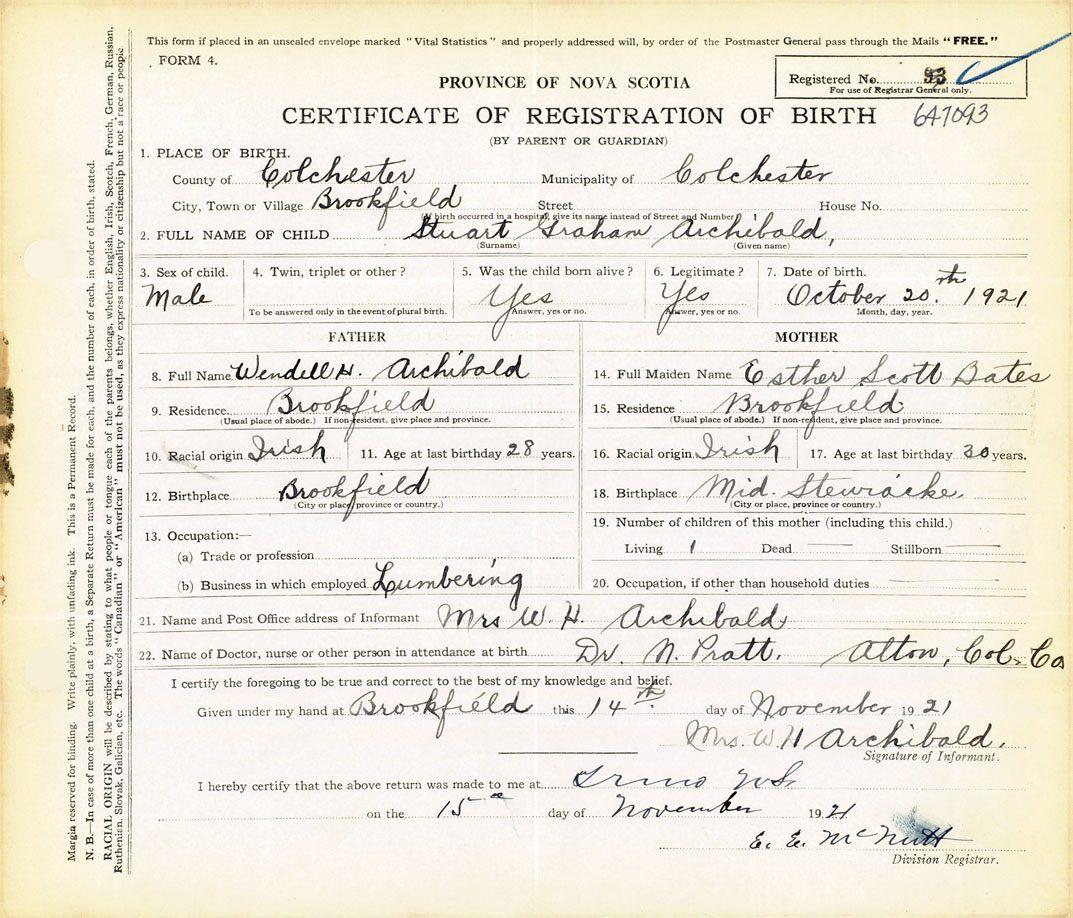 This form if placed in an unsealed envelope marked "Vital Statistics" and properly addressed will, by order of the Postmaster General pass through the Mails "FREE."
FORM 4.
Registered No. 93
For use of Registrar General only.
PROVINCE OF NOVA SCOTIA
CERTIFICATE OF REGISTRATION OF BIRTH 647093
(BY PARENT OR GUARDIAN)
1. PLACE OF BIRTH.
County of Colchester Municipality of Colchester
City, Town or Village Brookfield Street House No.
(If birth occurred in a hospital, give its name instead of Street and Number)
2. FULL NAME OF CHILD Stuart Graham Archibald,
(Surname) (Given name)
3. Sex of child. 4. Twin, triplet or other? 5. Was the child born alive? 6. Legitimate? 7. Date of birth.
Male Yes Yes October 20th. 1921
To be answered only in the event of plural birth. Answer, yes or no. Answer, yes or no. Month, day, year.
FATHER MOTHER
8. Full Name Wendell H. Archibald 14. Full Maiden Name Esther Scott Bates
9. Residence Brookfield 15. Residence Brookfield
(Usual place of abode.) If non-resident, give place and province. (Usual place of abode.) If non-resident, give place and province.
10. Racial origin Irish 11. Age at last birthday 28 years. 16. Racial origin Irish 17. Age at last birthday 30 years.
12. Birthplace Brookfield 18. Birthplace Mid. Stewiacke.
(City or place, province or country.) (City or place, province or country.)
13. Occupation:— 19. Number of children of this mother (including this child.)
(a) Trade or profession Living 1 Dead — Stillborn —
(b) Business in which employed Lumbering 20. Occupation, if other than household duties —
21. Name and Post Office address of Informant Mrs W. H. Archibald
22. Name of Doctor, nurse or other person in attendance at birth Dr. N. Pratt. Alton, Col. Co
I certify the foregoing to be true and correct to the best of my knowledge and belief.
Given under my hand at Brookfield this 14th. day of November 1921
Mrs. W H Archibald.
Signature of Informant.
I hereby certify that the above return was made to me at NS
on the 15 day of November 1921
E. E. McNutt
Division Registrar.
Margin reserved for binding. Write plainly, with unfading ink. This is a Permanent Record.
N. B.—In case of more than one child at a birth, a Separate Return must be made for each, and the number of each, in order of birth, stated.
RACIAL ORIGIN will be described by stating to what people or tongue each of the parents belongs, whether English, Irish, Scotch, French, German, Russian,
Ruthenian, Slovak, Galician, etc. The words "Canadian" or "American" must not be used, as they express nationality or citizenship but not a race or people